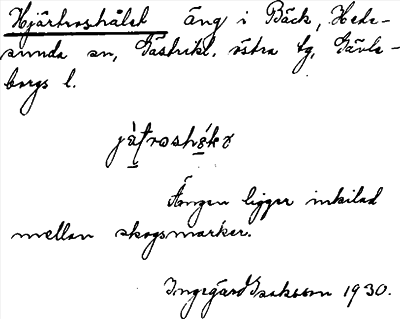 Hjärtroshålet äng i Bäck, Hede-
sunda sn, Gästrikl. östra tg, Gävle-
borgs l.
Ängen ligger inkilad
mellan skogsmarker.
Ingegärd Isaksson 1930.